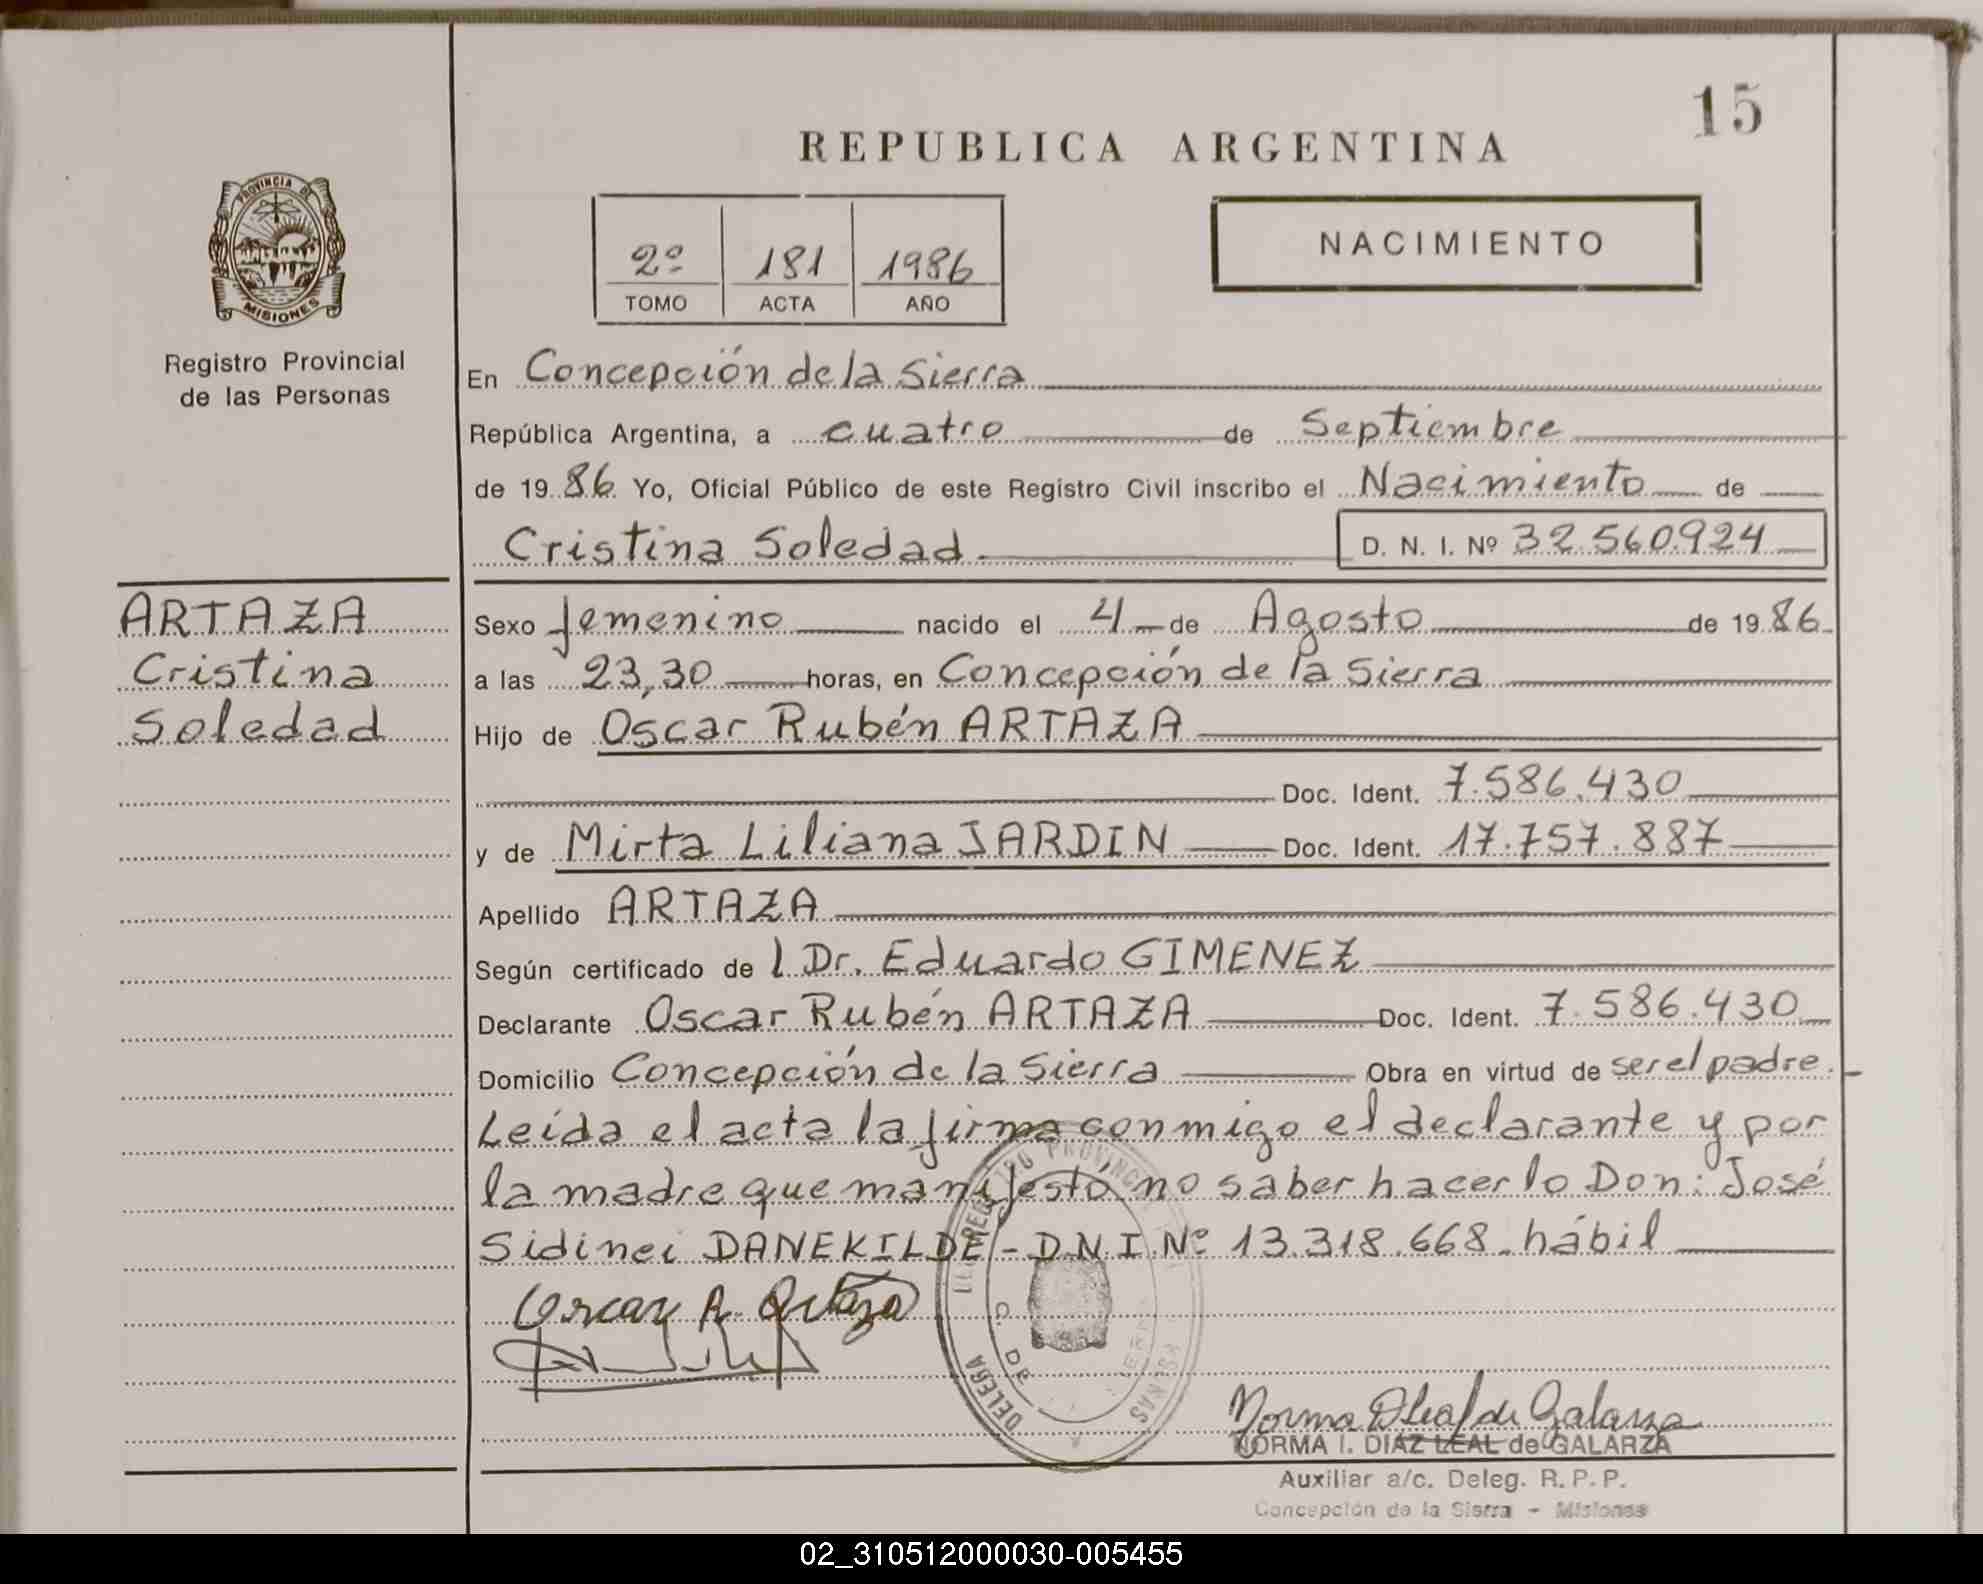 15
REPUBLICA ARGENTINA
PROVINCIA DE
MISIONES
Registro Provincial
de las Personas
2º 181 1986
TOMO ACTA AÑO
NACIMIENTO
En Concepción de la Sierra
República Argentina, a cuatro de Septiembre
de 1986 Yo, Oficial Público de este Registro Civil inscribo el Nacimiento de
Cristina Soledad D. N. I. Nº 32.560.924
ARTAZA
Cristina
Soledad
Sexo femenino nacido el 4 de Agosto de 1986
a las 23,30 horas, en Concepción de la Sierra
Hijo de Oscar Rubén ARTAZA
Doc. Ident. 7.586.430
y de Mirta Liliana JARDIN Doc. Ident. 17.757.887
Apellido ARTAZA
Según certificado de l Dr. Eduardo GIMENEZ
Declarante Oscar Rubén ARTAZA Doc. Ident. 7.586.430
Domicilio Concepción de la Sierra Obra en virtud de ser el padre.
Leída el acta la firma conmigo el declarante y por
la madre que manifestó no saber hacerlo Don: José
Sidinei DANEKILDE - D.N.I. Nº 13.318.668. hábil
Oscar R. Artaza
Norma D Leal de Galarza
NORMA I. DIAZ LEAL de GALARZA
Auxiliar a/c. Deleg. R. P. P.
Concepción de la Sierra - Misiones
02_310512000030-005455